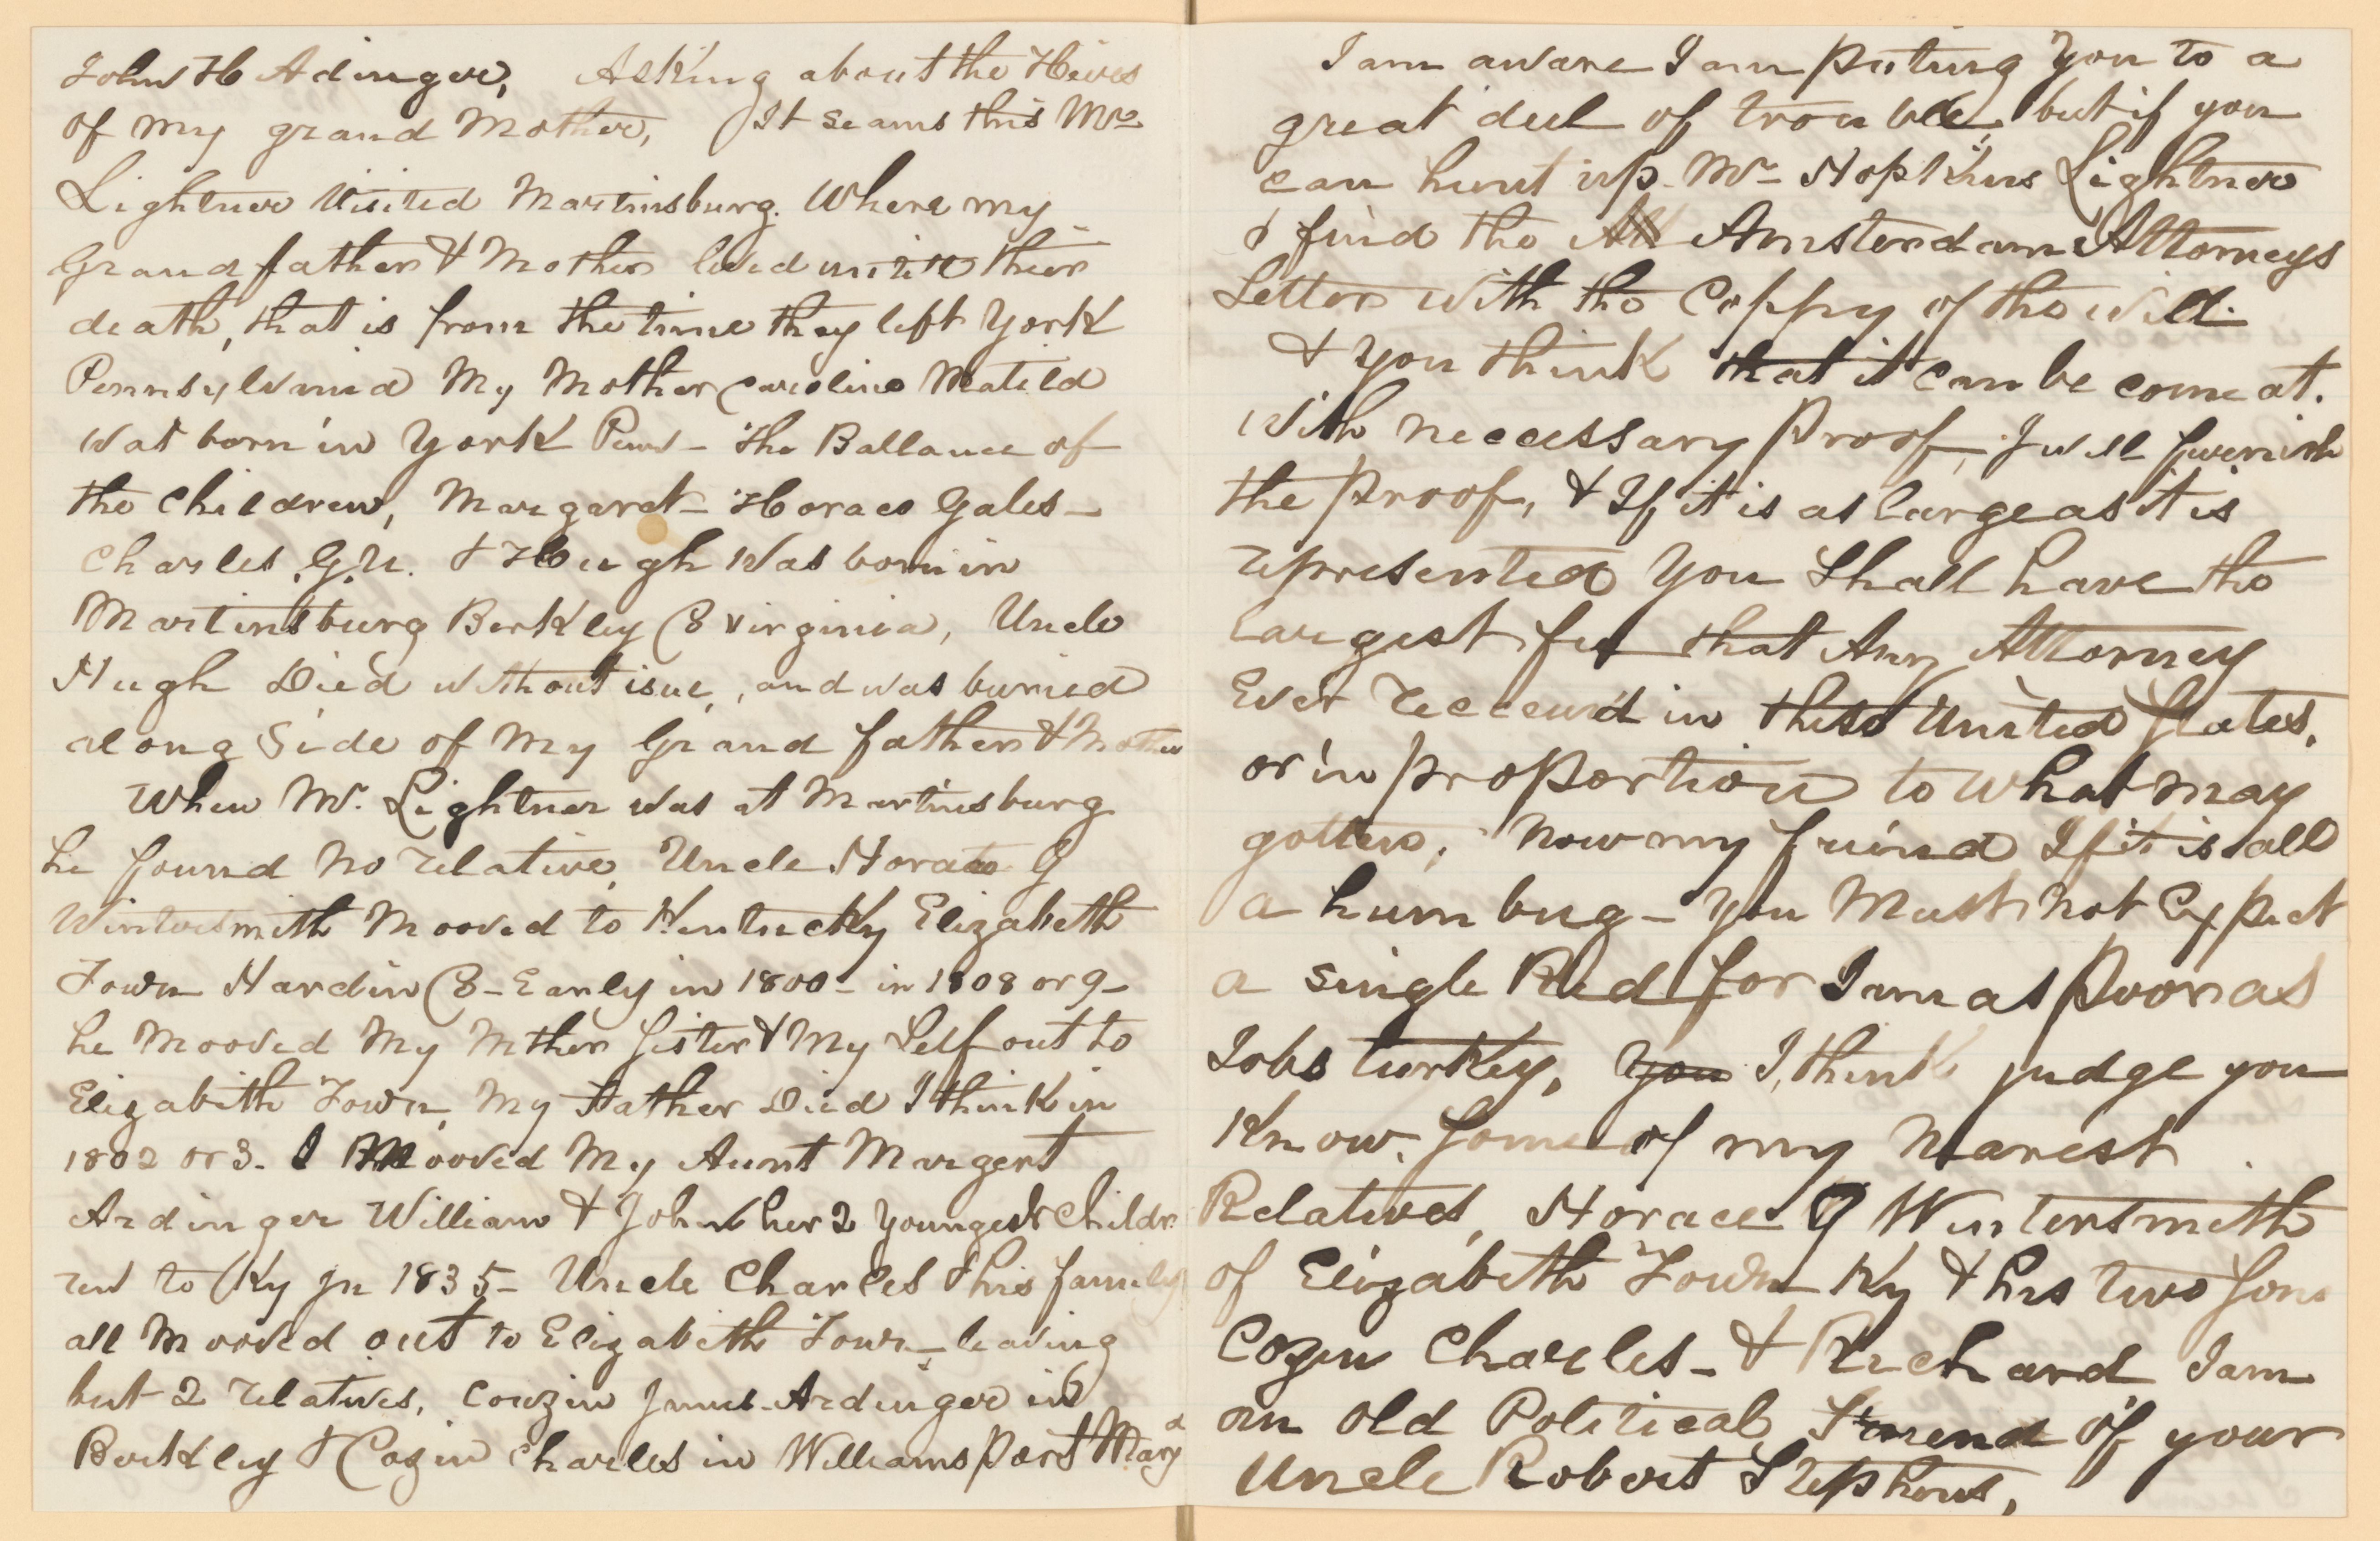 John H Adinger, Asking about the Heires
of my grand Mother, It seams this Mr
Lightner Visited Martinsburg. Where my
Grand father & Mother lived untill their
death, that is from the time they left York
Pennsylvania My Mother Caroline Matild
Wat born in York Penn - The Ballance of
the Children, Margaret - Horace Gates -
Charles G. & Hugh Was born in
Martinsburg Berkley Co Virginia, Uncle
Hugh Died without isue, and was buried
along Side of My Grand father & Mother
When Mr. Lightner was at Martinsburg
he found No relative, Uncle Horace G
Wintersmith Mooved to Kentucky Elizabeth
Town Hardin Co - Early in 1800 - in 1808 or 9 -
he Mooved My Mther Sister & My Self out to
Elizabeth Town, My Father Died I think in
1802 or 3. I Mooved My Aunt Margert
Ardinger William & John her 2 Youngest Childr
ren to Ky In 1835 - Uncle Charles & his family
all Mooved out to Elizabeth Town - leaving
but 2 relatives, Couzin Ardinger in
Berkley & Cozin Charles in Williamsport Mary a
I am aware I am puting You to a
great deel of trouble, but if you
can hunt up. Mr - Hopkins Lightner
& find the All Amsterdam Attorneys
Letter with the Coppy of the will.
& You think that it can be come at.
With necessary Proof, I will furnish
the Proof, & If it is as large as it is
represented You Shall have the
largest fee that Any Attorney
Ever Received in these United States,
or in proportion to what may
gotten, Now my friend If it is all
a hum bug - You Must Not Expect
a single Red for I am as Poor as
Jobs turkey, You I, think judge you
Know. Some of my Nearest
Relatives, Horace G Wintersmith
of Elizabeth Town Ky & his two Sons
Cozin Charles - & Richard I am
an old Political Friend of your
Uncle Robert Stephens,